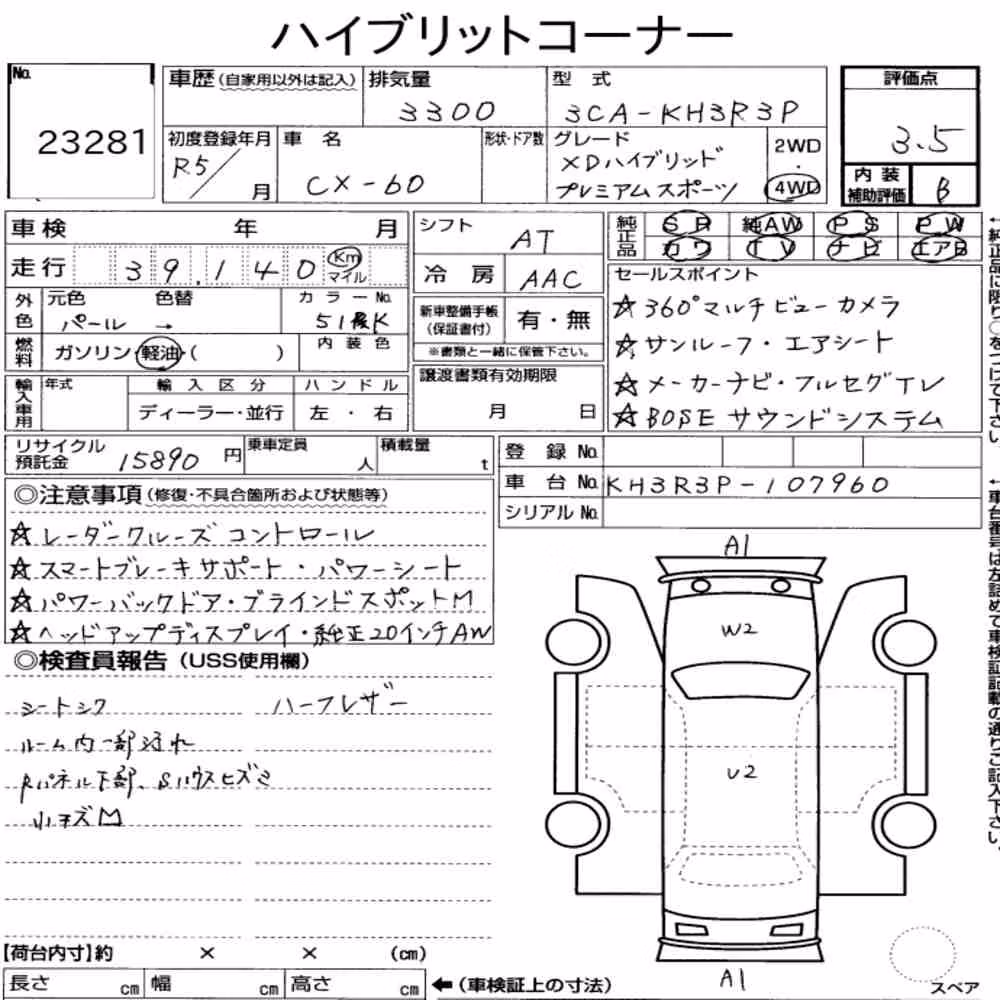 ハイブリットコーナー
No. 23281
車歴(自家用以外は記入)
排気量 3300
型式 3CA-KH3R3P
評価点 3.5
初度登録年月 R5/ 月
車名 CX-60
形状・ドア数
グレード XDハイブリッド プレミアムスポーツ
2WD・4WD
内装補助評価 B
車検 年 月
シフト AT
純正品 SR 純AW PS PW
カワ TV ナビ エアB
走行 39,140 Km マイル
冷房 AAC
セールスポイント
☆360°マルチビューカメラ
☆サンルーフ・エアシート
☆メーカーナビ・フルセグTV
☆BOSEサウンドシステム
外色 元色 パール → 色替
カラーNo. 51K
内装色
新車整備手帳(保証書付) 有・無
※書類と一緒に保管下さい。
燃料 ガソリン・軽油・( )
譲渡書類有効期限 月 日
輸入車用 年式 輸入区分 ディーラー・並行 ハンドル 左・右
リサイクル預託金 15890円
乗車定員 人
積載量 t
登録No.
車台No. KH3R3P-107960
シリアルNo.
◎注意事項(修復・不具合箇所および状態等)
☆レーダークルーズコントロール
☆スマートブレーキサポート・パワーシート
☆パワーバックドア・ブラインドスポットM
☆ヘッドアップディスプレイ・純正20インチAW
◎検査員報告(USS使用欄)
シートシワ ハーフレザー
ルーム内一部汚れ
Rパネル下部、Sハウスヒズミ
小キズM
A1
W2
U2
A1
スペア
【荷台内寸】約 × × (cm)
長さ cm 幅 cm 高さ cm ←(車検証上の寸法)
←純正品に限り○をつけて下さい。
←車台番号は左詰めで車検証記載の通りご記入下さい。